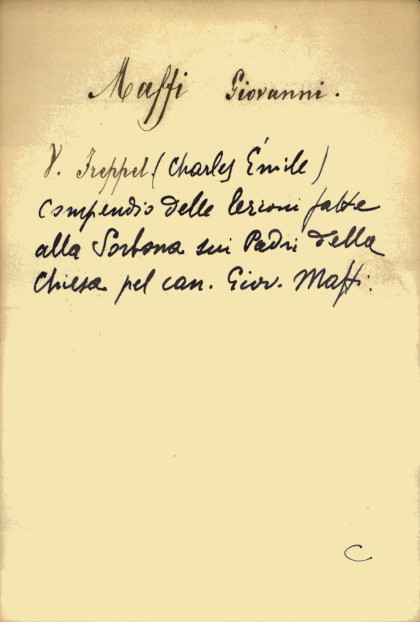 Maffi Giovanni.
V. Freppel (Charles Émile)
Compendio delle lezioni fatte
alla Sorbona sui Padri della
Chiesa pel can. Giov. Maffi.
C